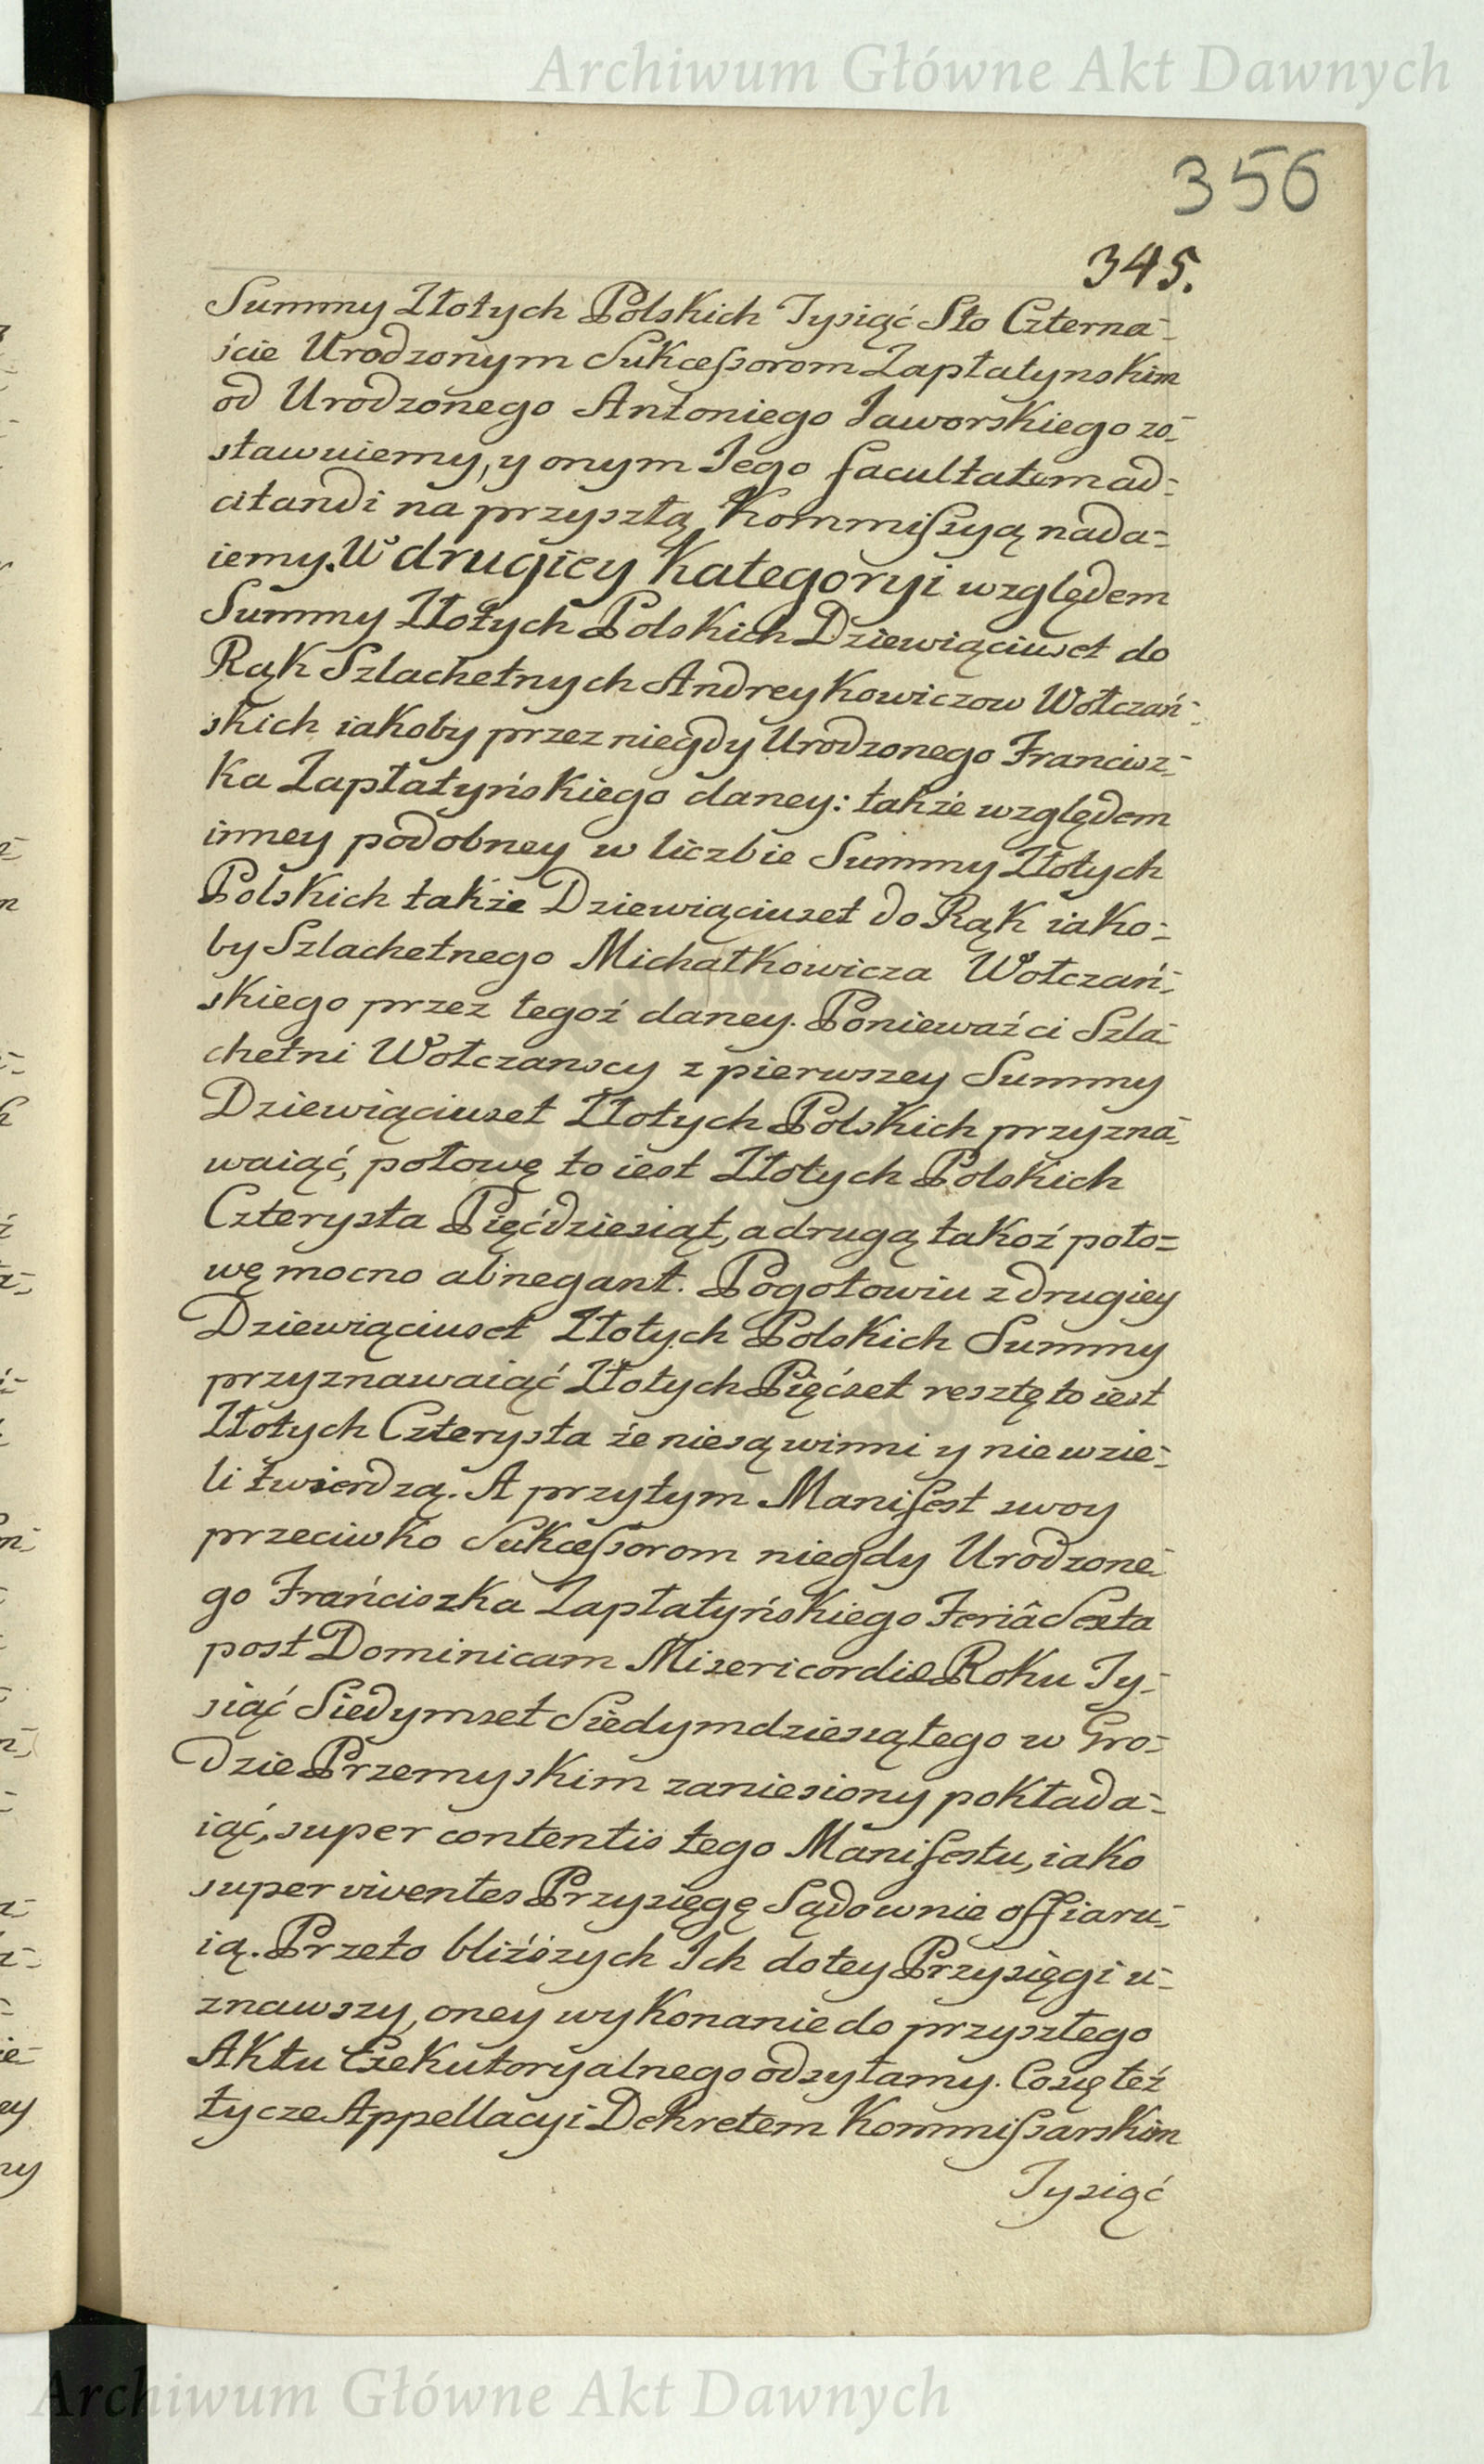 Archiwum Główne Akt Dawnych
356
345.
Summy Złotych Polskich Tysiąć Sto Czterna-
ście Urodzonym Sukcessorom Zapłatynskim
od Urodzonego Antoniego Jaworskiego zo-
stawuiemy, y onym Jego facultatem ad-
citandi na przyszłą Kommissyą nada-
iemy. W drugiey Kategoryi względem
Summy Złotych Polskich Dziewiąciuset do
Rąk Szlachetnych Andreykowiczow Wołczań-
skich iakoby przez niegdy Urodzonego Francisz-
ka Zapłatyńskiego daney: także względem
inney podobney w liczbie Summy Złotych
Polskich także Dziewiąciuset do Rąk iako-
by Szlachetnego Michałkowicza Wołczań-
skiego przez tegoż daney. Ponieważ ci Szla-
chetni Wołczanscy z pierwszey Summy
Dziewiąciuset Złotych Polskich przyzna-
waiąć, połowę to iest Złotych Polskich
Czterysta Pięćdziesiąt, a drugą takoż poło-
wę mocno abnegant. Pogotowiu z drugiey
Dziewiąciuset Złotych Polskich Summy
przyznawaiąć Złotych Pięćset resztę to iest
Złotych Czterysta że niesą winni y nie wzie-
li twierdzą. A przytym Manifest swoy
przeciwko Sukcessorom niegdy Urodzone-
go Frańciszka Zapłatyńskiego Feriâ Sexta
post Dominicam Misericordiæ Roku Ty-
siąć Siedymset Siedymdziesiątego w Gro-
dzie Przemyskim zaniesiony pokłada-
iąć, super contentis tego Manifestu, iako
superviventes Przysięgę Sądownie offiaru-
ią. Przeto bliższych Ich do tey Przysięgi u-
znawszy, oney wykonanie do przyszłego
Aktu Exekutoryalnego odsyłamy. Co się też
tycze Appellacyi Dekretem Kommissarskim
Tysiąć
Archiwum Główne Akt Dawnych